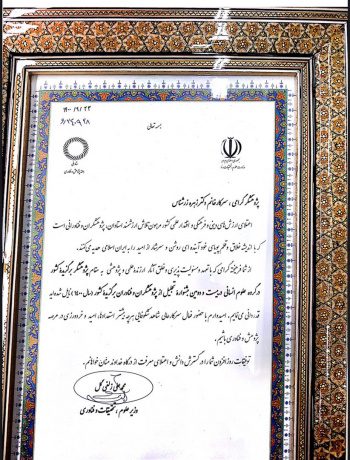 ۱۴۰۰/۹/۲۳
بسمه تعالی
جمهوری اسلامی ایران
وزارت علوم، تحقیقات و فناوری
پژوهشگر گرامی، سرکار خانم دکتر زهره زرشناس
اعتلای ارزش‌های دینی و فرهنگی و اقتدار علمی کشور مرهون کوشش ارزشمند استادان، پژوهشگران و فناورانی است
که با اندیشه خلاق و قلم پویای خود آینده‌ای روشن و سرشار از امید را به ایران اسلامی هدیه می‌کنند.
از شما فرهیخته گرامی که با تعهد و مسئولیت پذیری و خلق آثار ارزنده علمی و پژوهشی به مقام پژوهشگر برگزیده کشور
در گروه علوم انسانی در بیست و دومین جشنواره تجلیل از پژوهشگران و فناوران برگزیده کشور (سال ۱۴۰۰) نایل شده‌اید
قدردانی می‌نمایم. امیدوارم با حضور فعال سرکارعالی شاهد شکوفایی هر چه بیشتر استعدادها، امید و خردورزی در عرصه
پژوهش و فناوری باشیم.
توفیقات روزافزون شما را در گسترش دانش و اعتلای معرفت از درگاه خداوند منان خواهانم.
محمدعلی زلفی گل
وزیر علوم، تحقیقات و فناوری